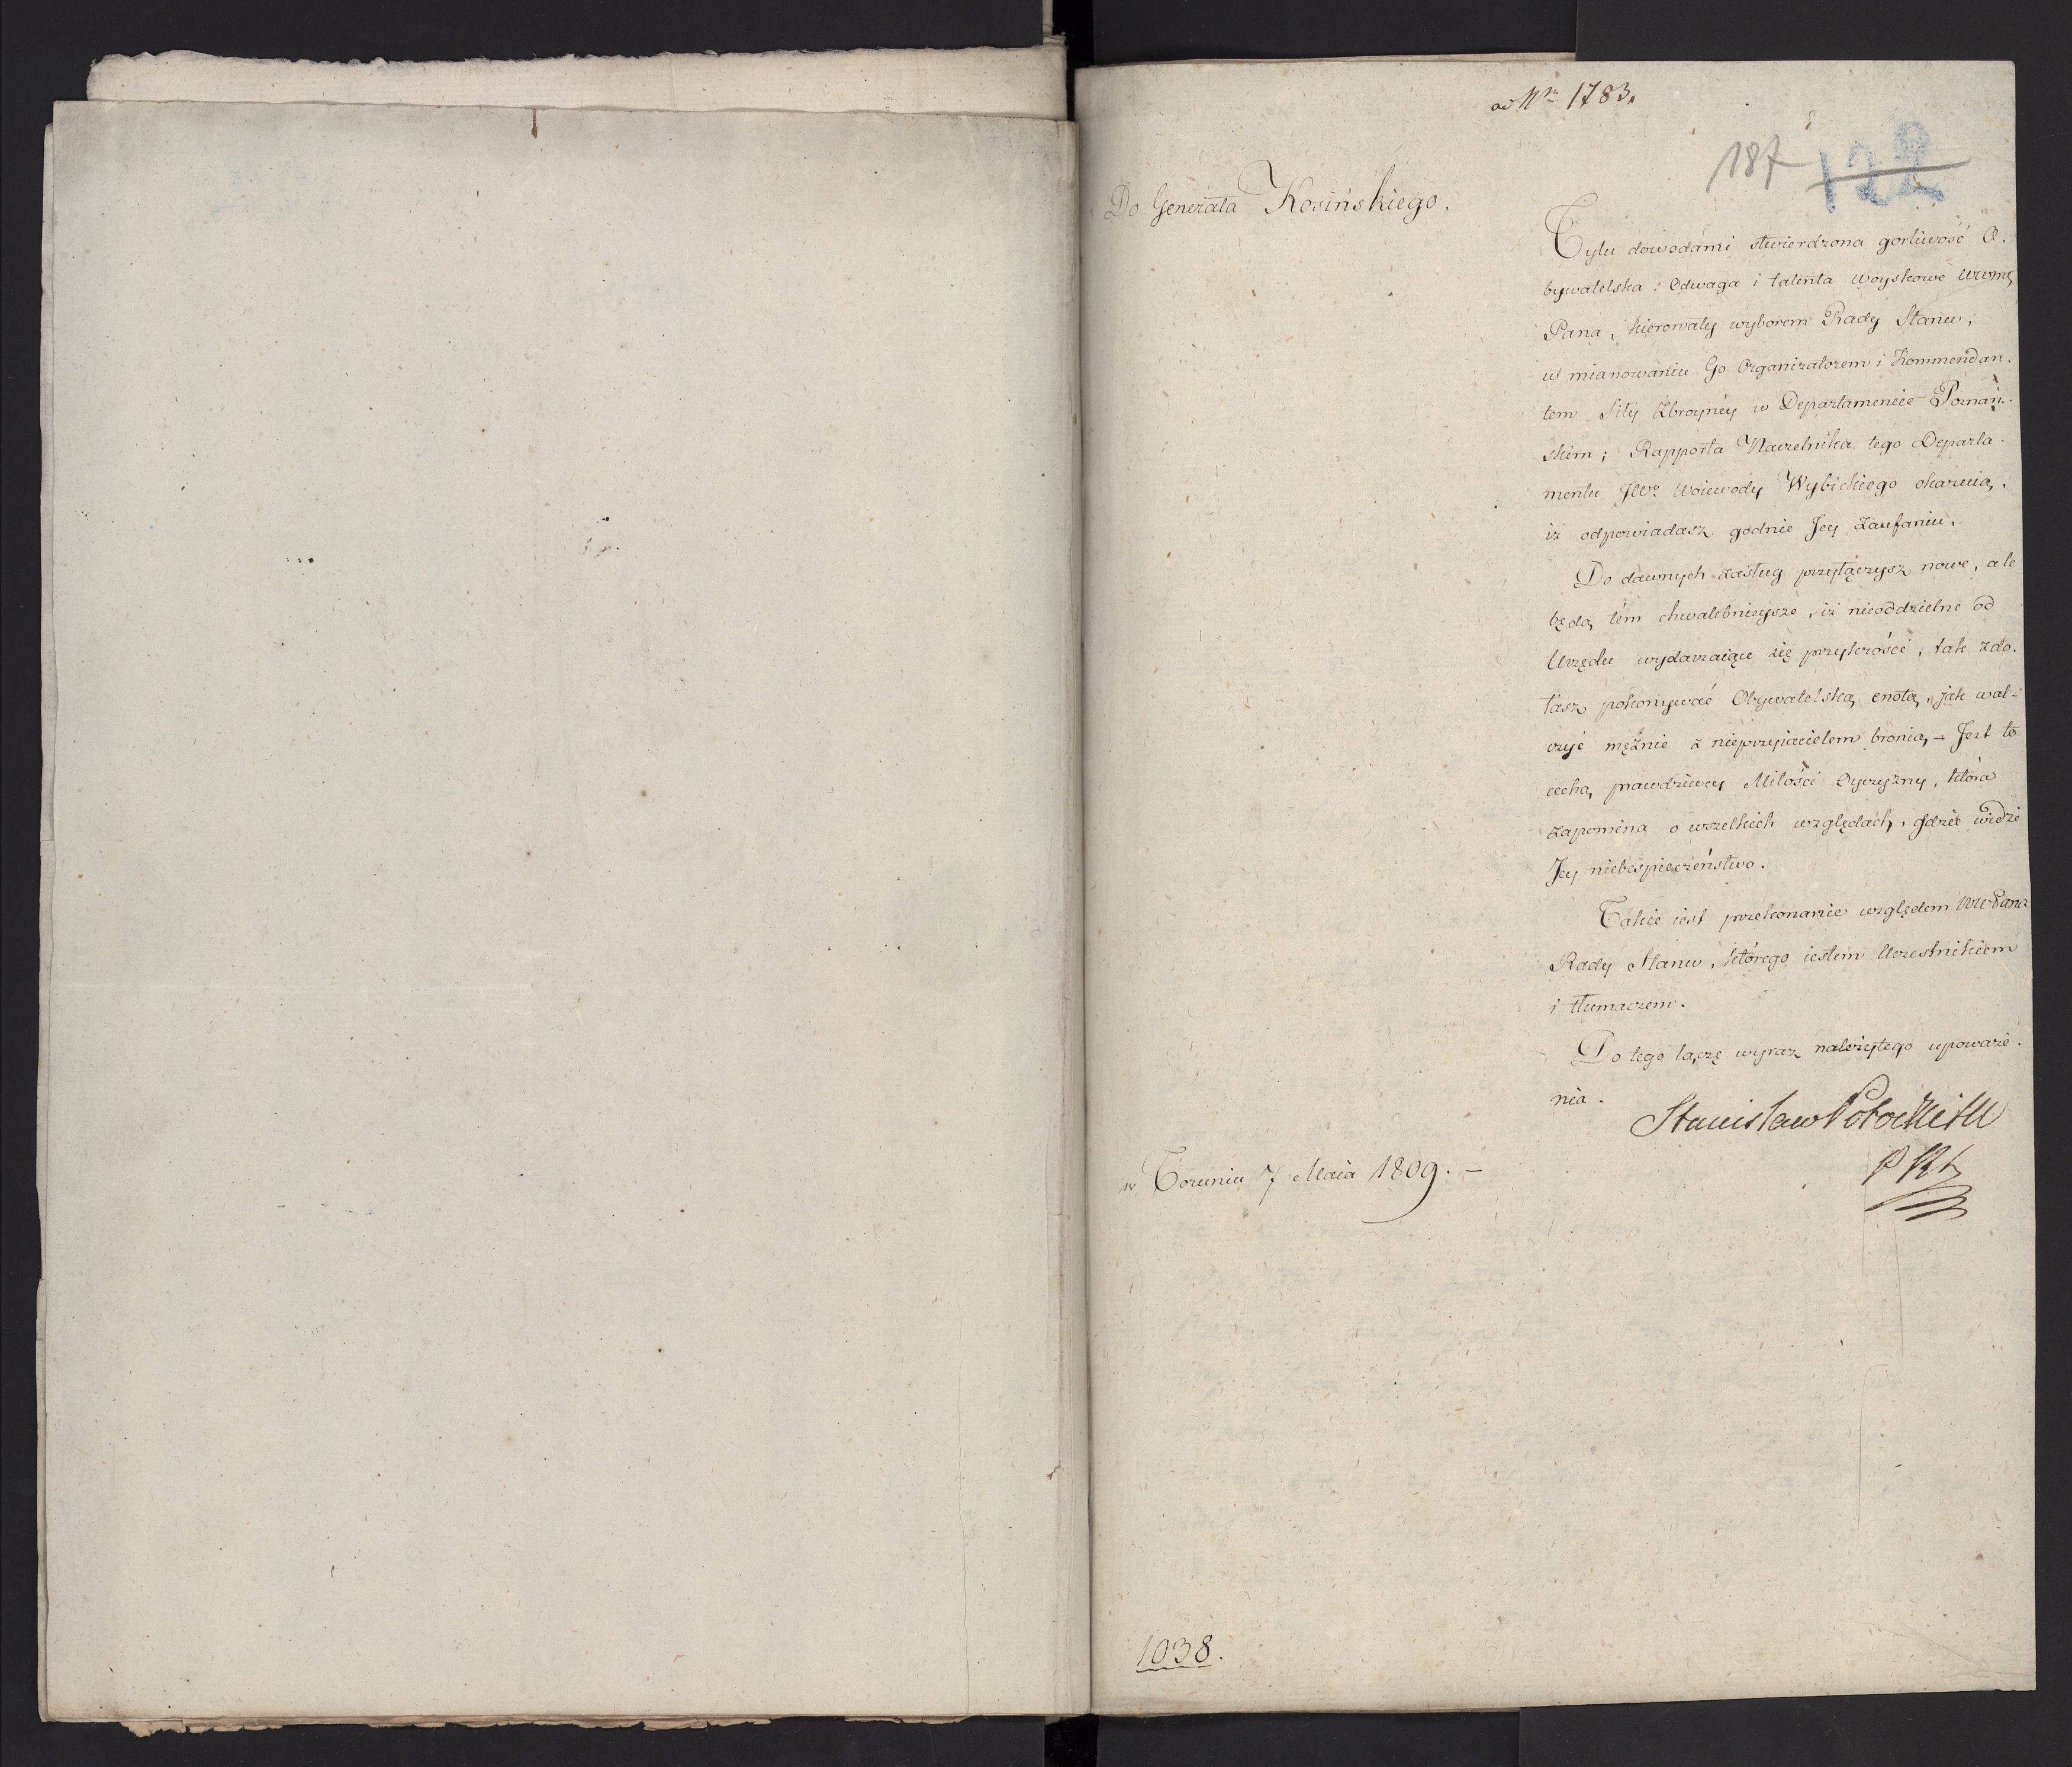 ad Nr 1783.
187 122
Do Generała Kosińskiego.
Tylu dowodami stwierdzona gorliwość O.
bywatelska: Odwaga i talenta woyskowe
Pana, kierowały wyborem Rady Stanu,
w mianowaniu Go Organizatorem i Kommendan.
tem Siły Zbroyney w Departamencie Poznań.
skim; Rapporta Naczelnika tego Departa.
mentu JWo Woiewody Wybickiego okazuią,
iż odpowiadasz godnie Jey Zaufaniu.
Do dawnych zasług przyłączysz nowe, ale
będą tém chwalebnieysze, iż nieoddzielne od
Urzędu wydarzaiące się przykrości, tak zdo.
łasz pokonywać Obywatelską cnotą, jak wal-
czyć mężnie z nieprzyiacielem bronią, – Jest to
cechą prawdziwey Miłości Oyczyzny, która
zapomina o wszelkich względach, gdzie widzi
Jey niebespieczeństwo.
Takie iest przekonanie względem WWPana
Rady Stanu, którego iestem Uczestnikiem
i tłumaczem.
Do tego łączę wyraz należytego upoważe.
nia.
Stanisław Potocki
w Toruniu 7 Maia 1809. –
1038.